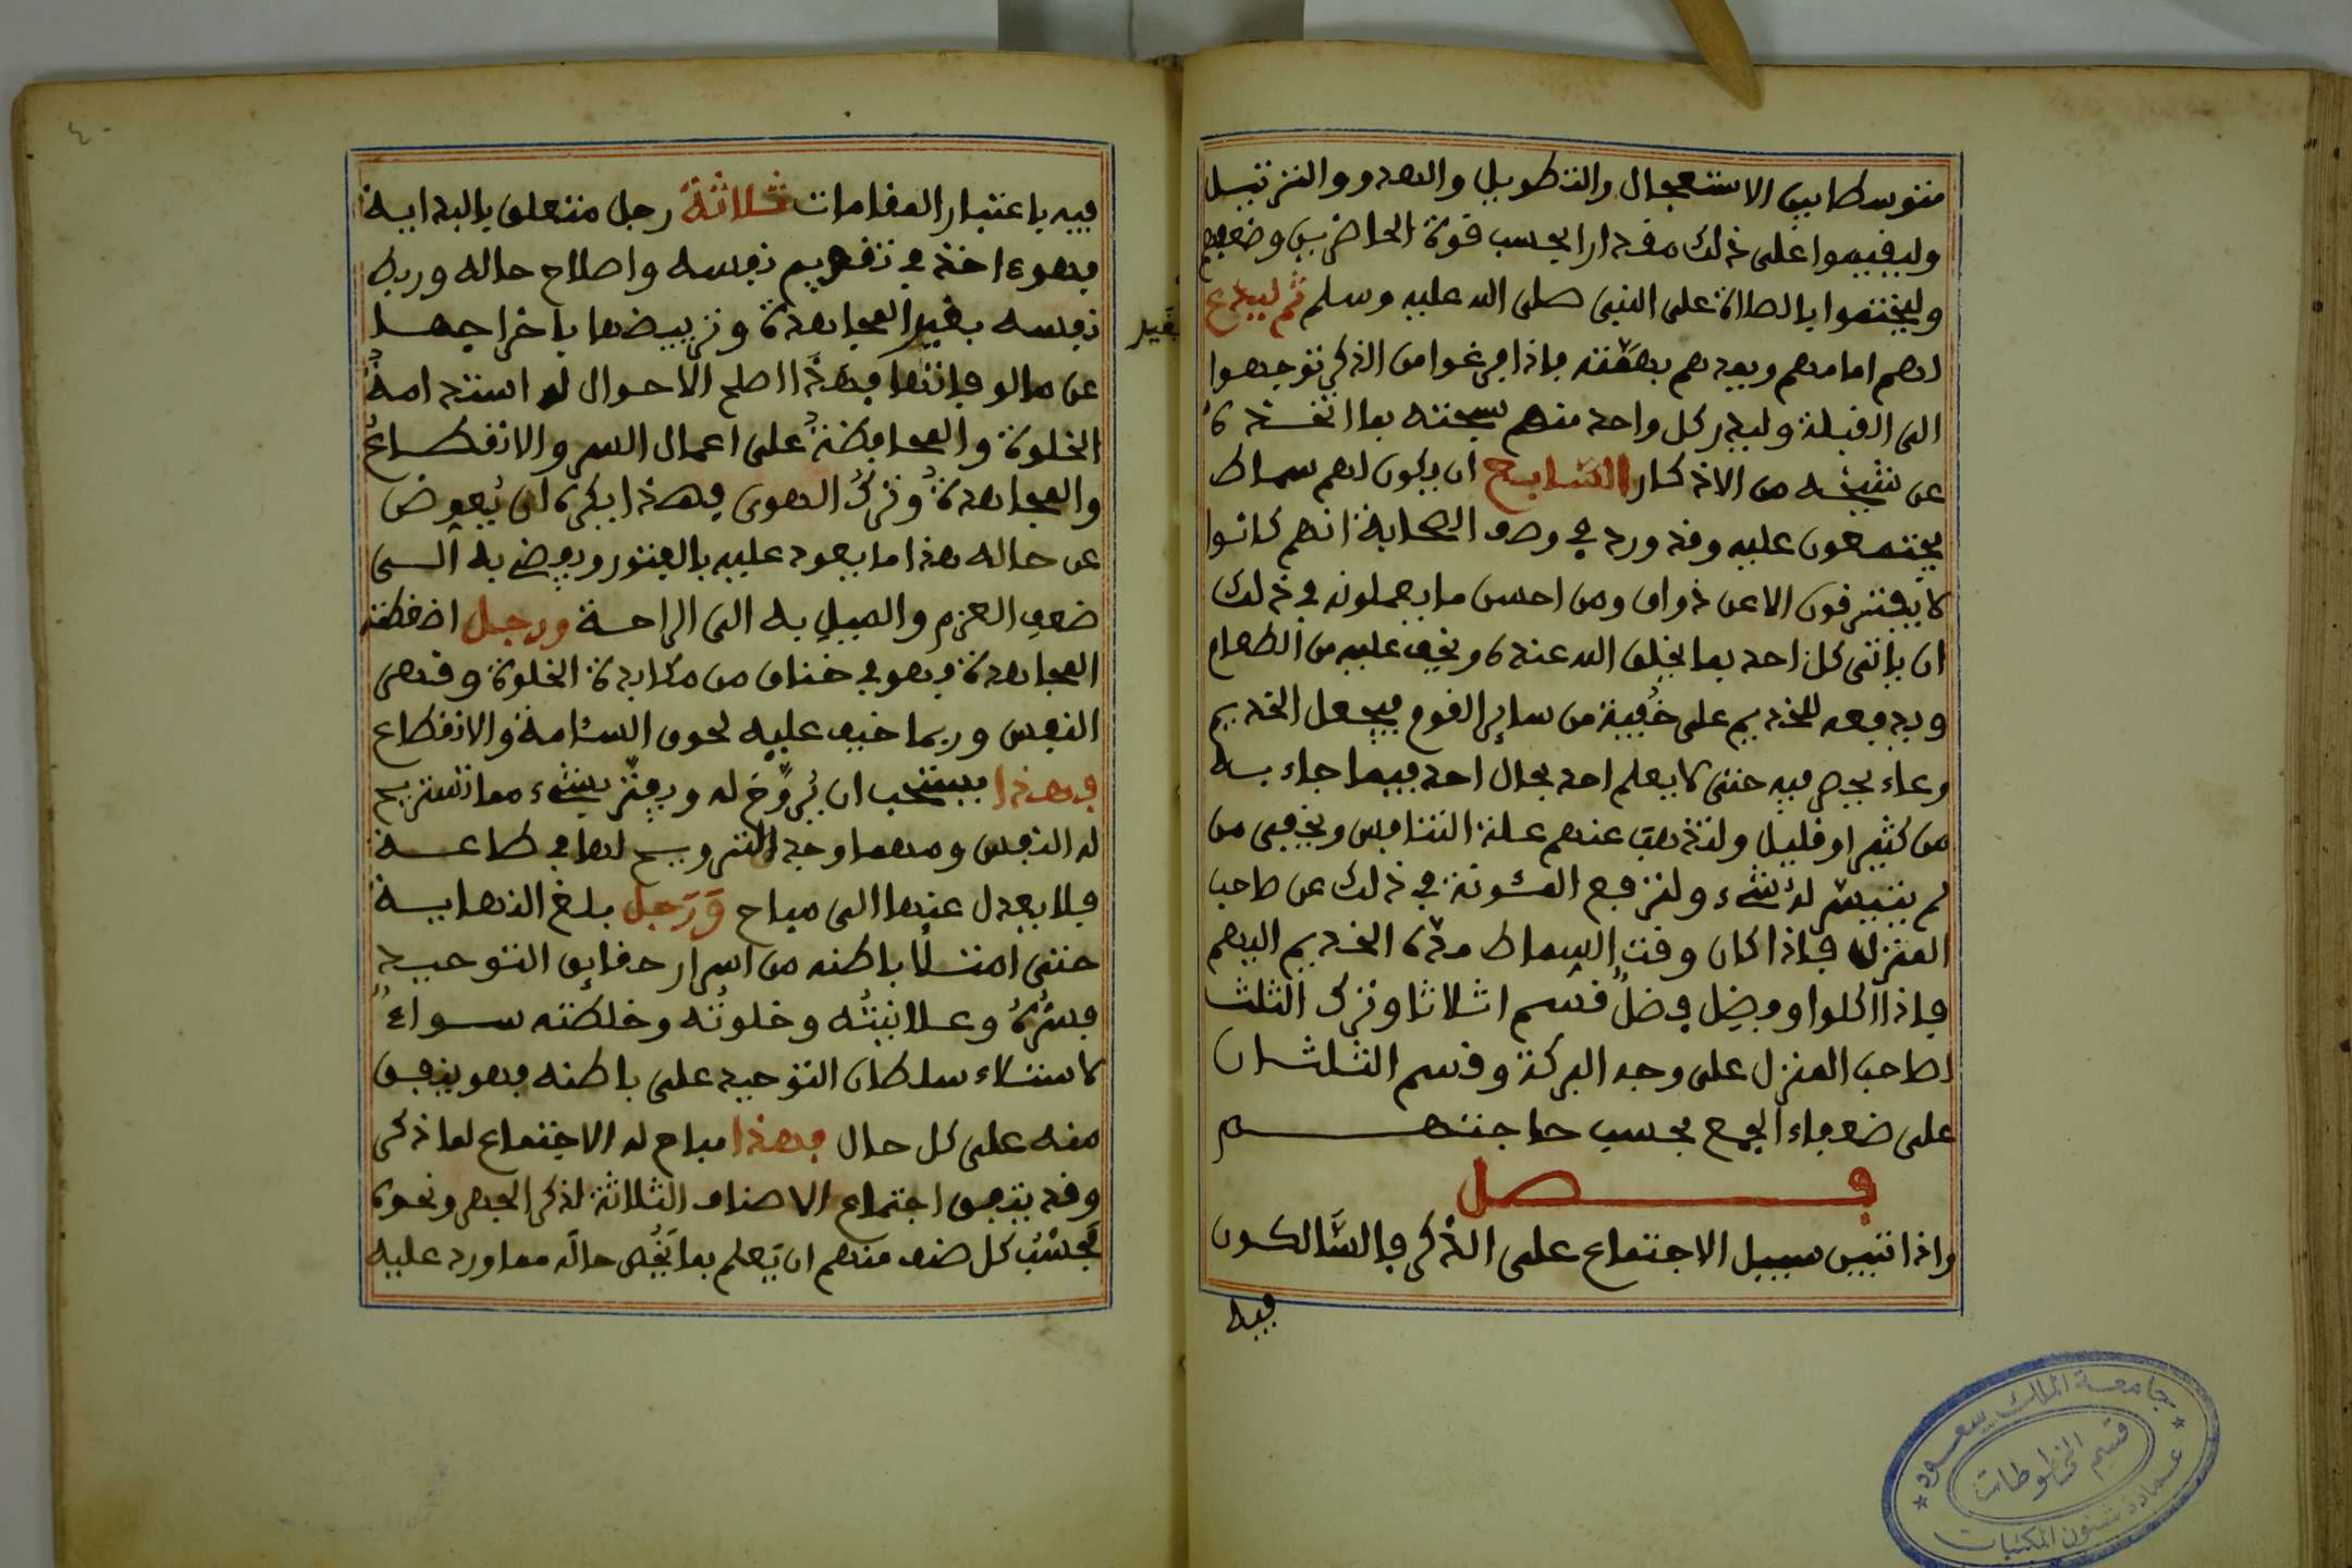 متوسطا بين الاستعجال والتطويل والهدو والترتيل
وليقيموا على ذلك مقدارا بحسب قوة الحاضرين وضعفهم
وليختموا بالصلاة على النبي صلى الله عليه وسلم ثم ليدع
لهم امامهم وبعدهم بصفته فاذا فرغوا من الذكر توجهوا
الى القبلة وليدر كل واحد منهم سبحته بما اتخذه
عن شيخه من الاذكار السابع ان يكون لهم سماط
يجتمعون عليه وقد ورد في وصف الصحابة انهم كانوا
لا يفترقون الا عن ذواق ومن احسن ما يعملونه في ذلك
ان ياتي كل احد بما يخلق الله عنده ويخف عليه من الطعام
ويدفعه للخديم على خفية من ساير القوم فيجعل الخديم
وعاء يجمع فيه حتى لا يعلم احد بحال احد فيما جاء به
من كثير او قليل ولتذهب عنهم علة التنافس ويخفى من
لم يتيسر له شيء ولترفع المئونة في ذلك عن صاحب
المنزل فاذا كان وقت السماط مده الخديم اليهم
فاذا اكلوا وفضل فضل قسم اثلاثا وترك الثلث
لصاحب المنزل على وجه البركة وقسم الثلثان
على ضعفاء الجمع بحسب حاجتهم
فصل
واذا تبين سبيل الاجتماع على الذكر فالسالكون
فيه
فيه باعتبار المقامات ثلاثة رجل متعلق بالبداية
فهو ءاخذ في تقويم نفسه واصلاح حاله وربط
نفسه بقيد المجاهدة وترييضها باخراجها
عن مالوفاتها فهذا اصلح الاحوال له استدامة
الخلوة والمحافظة على اعمال السر والانقطاع
والمجاهدة وترك الهوى فهذا يكره له ان يعوض
عن حاله هذا ما يعود عليه بالفتور ويفضي به الى
ضعف العزم والميل به الى الراحة ورجل اضغطته
المجاهدة فهو في خناق من مكابدة الخلوة وقهر
النفس وربما خيف عليه لحوق السئامة والانقطاع
فهذا يستحب ان يروح له ويفتر بشيء مما تستريح
له النفس ومهما وجد الترويح لها في طاعة
فلا يعدل عنها الى مباح ورجل بلغ النهاية
حتى امتلأ باطنه من اسرار حقايق التوحيد
فسره وعلانيته وخلوته وخلطته سواء
لاستيلاء سلطان التوحيد على باطنه فهو ينفق
منه على كل حال فهذا مباح له الاجتماع لما ذكر
وقد يتفق اجتماع الاصناف الثلاثة لذكر الجهر ونحوه
فحسب كل صنف منهم ان يعلم بما يخص حاله مما ورد عليه
بقيد
٤٠
جامعة الملك سعود
قسم المخطوطات
عمادة شئون المكتبات